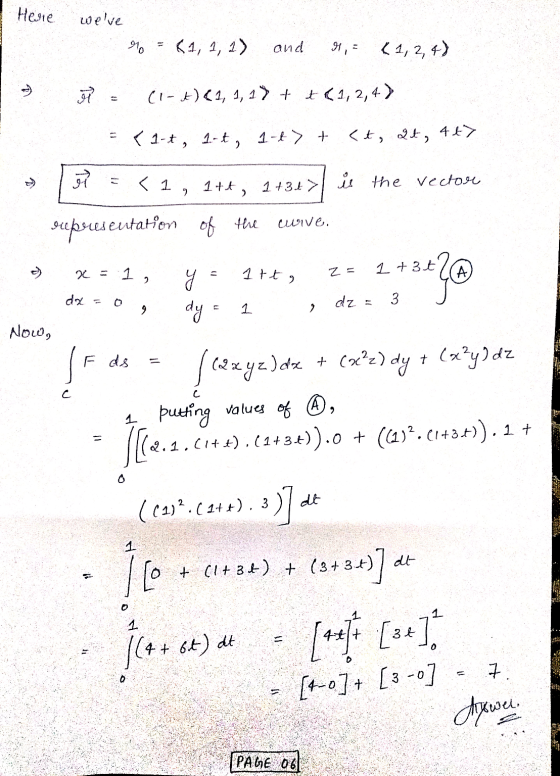 Here we've
r₀ = <1, 1, 1> and r₁ = <1, 2, 4>
⇒ r⃗ = (1-t)<1, 1, 1> + t<1, 2, 4>
= <1-t, 1-t, 1-t> + <t, 2t, 4t>
⇒ r⃗ = <1, 1+t, 1+3t> is the vector
representation of the curve.
⇒ x = 1, y = 1+t, z = 1+3t } Ⓐ
dx = 0, dy = 1, dz = 3
Now,
∫_C F ds = ∫_C (2xyz)dx + (x²z)dy + (x²y)dz
putting values of Ⓐ,
= ∫₀¹ [(2.1.(1+t).(1+3t)).0 + ((1)².(1+3t)).1 +
((1)².(1+t).3)] dt
= ∫₀¹ [0 + (1+3t) + (3+3t)] dt
= ∫₀¹ (4+6t) dt = [4t]₀¹ + [3t]₀¹
= [4-0] + [3-0] = 7.
Answer.
PAGE 06